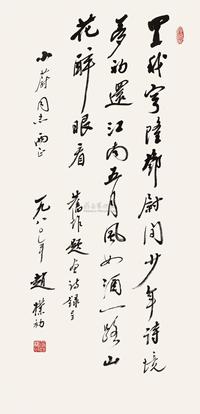 置我穹隆邓尉间少年诗境
梦初还江南五月风如酒一路山
花醉眼看
旧作题画诗录奉
小蔚同志两正
一九八〇年 赵朴初